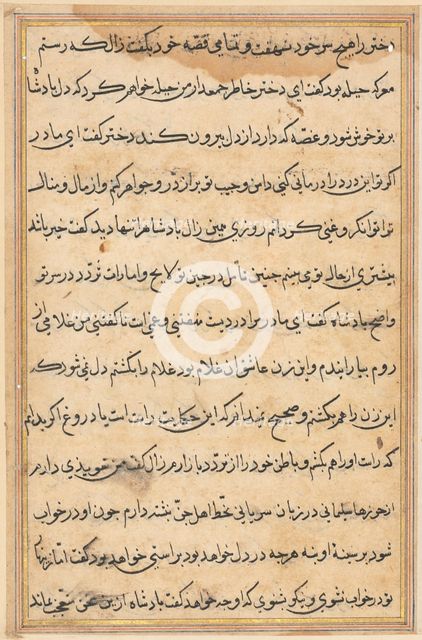 دختر را هیچ سر خود ننهفت و تمامی قصه خود بگفت زال که رستم
معرکه حیله بود گفت ای دختر خاطر جمعدار من حیله خواهم کرد که دل پادشاه
بر تو خوش شود و غصه که دارد از دل بیرون کند دختر گفت ای مادر
اگر تو این درد را درمانی کنی دامن و جیب تو پر از در و جواهر کنم و از مال و منال
ترا توانکر و غنی کردانم روزی همین زال پادشاه را تنها دید گفت خیر باشد
پیشتری از بحال تو می بینم جبین تأمل در جبین تو لایح و امارات تردد در سر تو
واضح پادشاه گفت ای مادر مرا دردیست نهفتنی و غمی است ناگفتنی من غلامی از
روم بیارانیدم و این زن عاشق آن غلام بود غلام را بکشتم دل نمی شود که
این زن را هم بکشم و صحیح نمیدانم که این حکایت راست است یا دروغ اکر بدانم
که راست او را هم بکشم و باطن خود را از تردد باز آرم زال گفت من تعویذی دارم
از حرزهاء سلیمانی در زبان سریانی بخط اهل جن نبشته دارم چون او در خواب
شود بر سینه او بنه هرچه در دل خواهد بود براستی خواهد بود گفت اما زینهار
تو در خواب نشوی و نیکو بشنوی که او چه خواهد گفت پادشاه ازین سخن متعجب بماند